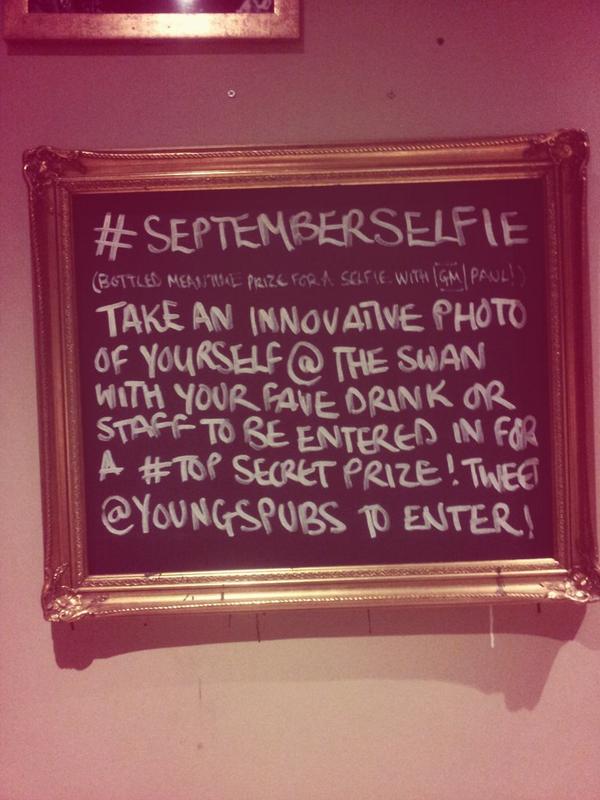 #SEPTEMBERSELFIE
(BOTTLED MEANTIME PRIZE FOR A SELFIE WITH |GM| PAUL!)
TAKE AN INNOVATIVE PHOTO
OF YOURSELF @ THE SWAN
WITH YOUR FAVE DRINK OR
STAFF TO BE ENTERED IN FOR
A #TOP SECRET PRIZE! TWEET
@YOUNGSPUBS TO ENTER!